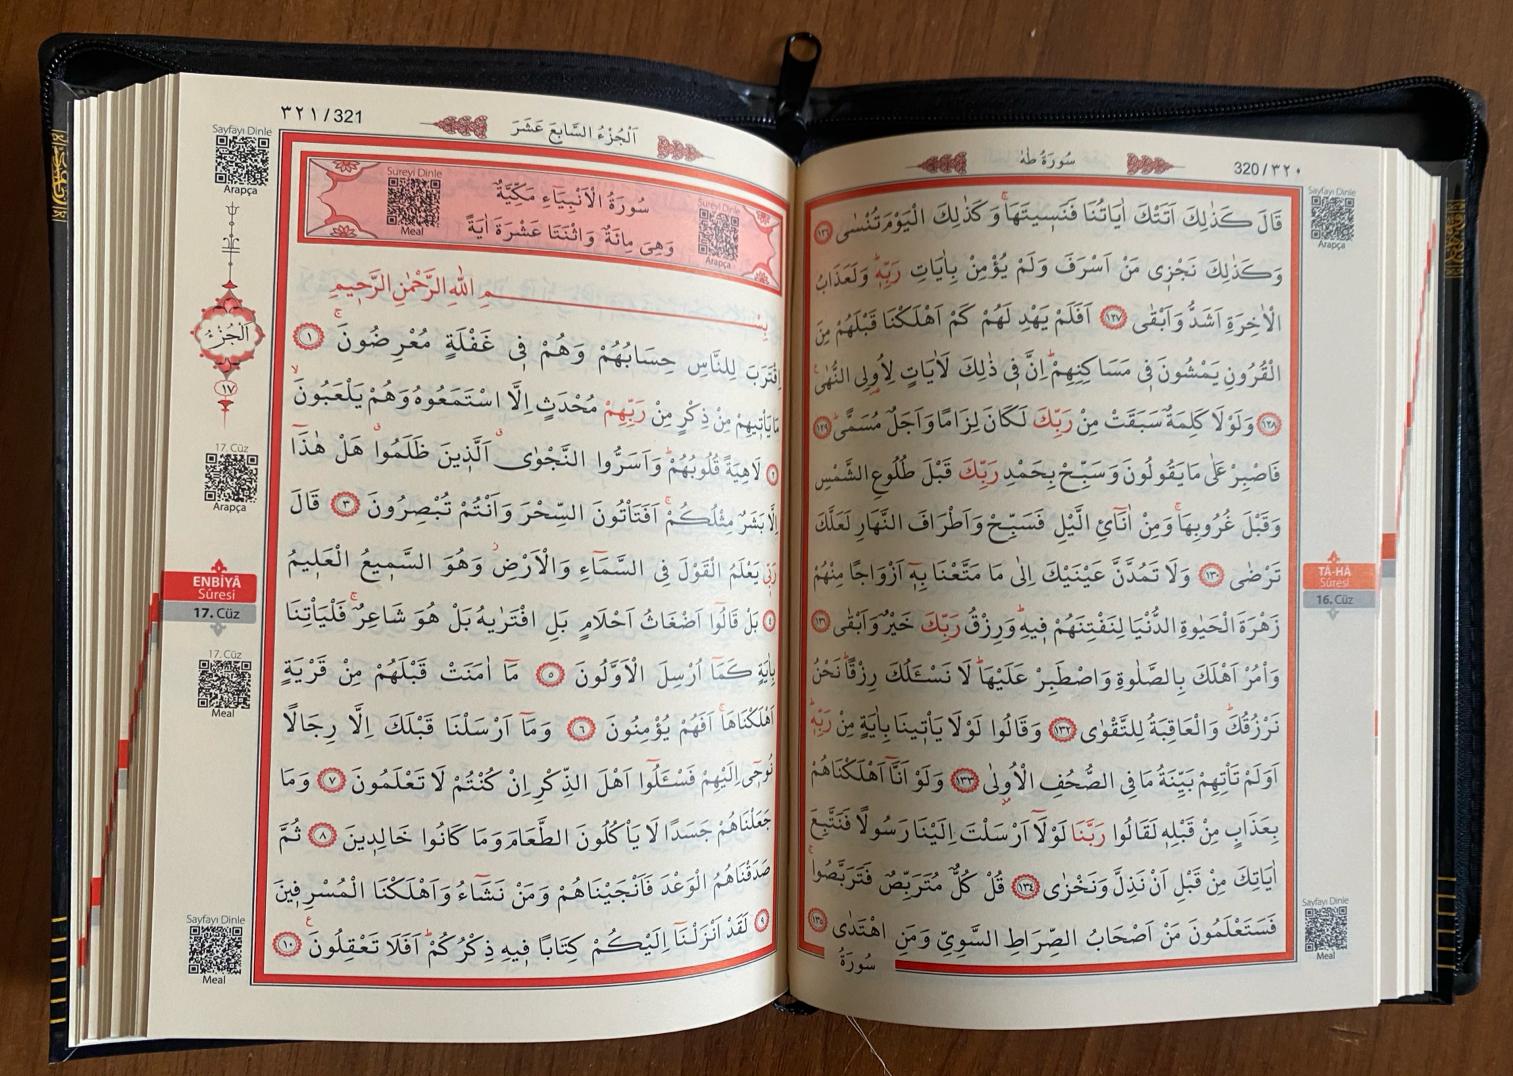 سُورَةُ طٰهٰ
320/٣٢٠
Sayfayı Dinle
Arapça
قَالَ كَذٰلِكَ اَتَتْكَ اٰيَاتُنَا فَنَسٖيتَهَاۚ وَكَذٰلِكَ الْيَوْمَ تُنْسٰى ﴿١٢٦﴾
وَكَذٰلِكَ نَجْزٖى مَنْ اَسْرَفَ وَلَمْ يُؤْمِنْ بِاٰيَاتِ رَبِّهٖؕ وَلَعَذَابُ
الْاٰخِرَةِ اَشَدُّ وَاَبْقٰى ﴿١٢٧﴾ اَفَلَمْ يَهْدِ لَهُمْ كَمْ اَهْلَكْنَا قَبْلَهُمْ مِنَ
الْقُرُونِ يَمْشُونَ فٖى مَسَاكِنِهِمْؕ اِنَّ فٖى ذٰلِكَ لَاٰيَاتٍ لِاُولِى النُّهٰىۚ
﴿١٢٨﴾ وَلَوْلَا كَلِمَةٌ سَبَقَتْ مِنْ رَبِّكَ لَكَانَ لِزَامًا وَاَجَلٌ مُسَمًّىؕ ﴿١٢٩﴾
فَاصْبِرْ عَلٰى مَا يَقُولُونَ وَسَبِّحْ بِحَمْدِ رَبِّكَ قَبْلَ طُلُوعِ الشَّمْسِ
وَقَبْلَ غُرُوبِهَاۚ وَمِنْ اٰنَٓائِ الَّيْلِ فَسَبِّحْ وَاَطْرَافَ النَّهَارِ لَعَلَّكَ
تَرْضٰى ﴿١٣٠﴾ وَلَا تَمُدَّنَّ عَيْنَيْكَ اِلٰى مَا مَتَّعْنَا بِهٖٓ اَزْوَاجًا مِنْهُمْ
زَهْرَةَ الْحَيٰوةِ الدُّنْيَا لِنَفْتِنَهُمْ فٖيهِؕ وَرِزْقُ رَبِّكَ خَيْرٌ وَاَبْقٰى ﴿١٣١﴾
وَاْمُرْ اَهْلَكَ بِالصَّلٰوةِ وَاصْطَبِرْ عَلَيْهَاؕ لَا نَسْـَٔلُكَ رِزْقًاؕ نَحْنُ
نَرْزُقُكَؕ وَالْعَاقِبَةُ لِلتَّقْوٰى ﴿١٣٢﴾ وَقَالُوا لَوْلَا يَاْتٖينَا بِاٰيَةٍ مِنْ رَبِّهٖؕ
اَوَلَمْ تَاْتِهِمْ بَيِّنَةُ مَا فِى الصُّحُفِ الْاُولٰى ﴿١٣٣﴾ وَلَوْ اَنَّٓا اَهْلَكْنَاهُمْ
بِعَذَابٍ مِنْ قَبْلِهٖ لَقَالُوا رَبَّنَا لَوْلَٓا اَرْسَلْتَ اِلَيْنَا رَسُولًا فَنَتَّبِعَ
اٰيَاتِكَ مِنْ قَبْلِ اَنْ نَذِلَّ وَنَخْزٰى ﴿١٣٤﴾ قُلْ كُلٌّ مُتَرَبِّصٌ فَتَرَبَّصُواۚ
فَسَتَعْلَمُونَ مَنْ اَصْحَابُ الصِّرَاطِ السَّوِىِّ وَمَنِ اهْتَدٰى ﴿١٣٥﴾
سُورَةُ
TÂ-HÂ
Sûresi
16. Cüz
Sayfayı Dinle
Meal
٣٢١/321
اَلْجُزْءُ السَّابِعَ عَشَرَ
Sayfayı Dinle
Arapça
Sureyi Dinle
Meal
Sureyi Dinle
Arapça
سُورَةُ الْاَنْبِيَاءِ مَكِّيَّةٌ
وَهِىَ مِائَةٌ وَاثْنَتَا عَشْرَةَ اٰيَةً
بِسْمِ اللّٰهِ الرَّحْمٰنِ الرَّحٖيمِ
اِقْتَرَبَ لِلنَّاسِ حِسَابُهُمْ وَهُمْ فٖى غَفْلَةٍ مُعْرِضُونَۚ ﴿١﴾
مَا يَاْتٖيهِمْ مِنْ ذِكْرٍ مِنْ رَبِّهِمْ مُحْدَثٍ اِلَّا اسْتَمَعُوهُ وَهُمْ يَلْعَبُونَۙ
﴿٢﴾ لَاهِيَةً قُلُوبُهُمْؕ وَاَسَرُّوا النَّجْوٰىۗ اَلَّذٖينَ ظَلَمُواۗ هَلْ هٰذَٓا
اِلَّا بَشَرٌ مِثْلُكُمْۚ اَفَتَاْتُونَ السِّحْرَ وَاَنْتُمْ تُبْصِرُونَ ﴿٣﴾ قَالَ
رَبّٖى يَعْلَمُ الْقَوْلَ فِى السَّمَٓاءِ وَالْاَرْضِؗ وَهُوَ السَّمٖيعُ الْعَلٖيمُ
﴿٤﴾ بَلْ قَالُٓوا اَضْغَاثُ اَحْلَامٍ بَلِ افْتَرٰيهُ بَلْ هُوَ شَاعِرٌۚ فَلْيَاْتِنَا
بِاٰيَةٍ كَمَٓا اُرْسِلَ الْاَوَّلُونَ ﴿٥﴾ مَٓا اٰمَنَتْ قَبْلَهُمْ مِنْ قَرْيَةٍ
اَهْلَكْنَاهَاۚ اَفَهُمْ يُؤْمِنُونَ ﴿٦﴾ وَمَٓا اَرْسَلْنَا قَبْلَكَ اِلَّا رِجَالًا
نُوحٖٓى اِلَيْهِمْ فَسْـَٔلُٓوا اَهْلَ الذِّكْرِ اِنْ كُنْتُمْ لَا تَعْلَمُونَ ﴿٧﴾ وَمَا
جَعَلْنَاهُمْ جَسَدًا لَا يَاْكُلُونَ الطَّعَامَ وَمَا كَانُوا خَالِدٖينَ ﴿٨﴾ ثُمَّ
صَدَقْنَاهُمُ الْوَعْدَ فَاَنْجَيْنَاهُمْ وَمَنْ نَشَٓاءُ وَاَهْلَكْنَا الْمُسْرِفٖينَ
﴿٩﴾ لَقَدْ اَنْزَلْنَٓا اِلَيْكُمْ كِتَابًا فٖيهِ ذِكْرُكُمْؕ اَفَلَا تَعْقِلُونَ ﴿١٠﴾
اَلْجُزْءُ
١٧
17. Cüz
Arapça
ENBİYÂ
Sûresi
17. Cüz
17. Cüz
Meal
Sayfayı Dinle
Meal